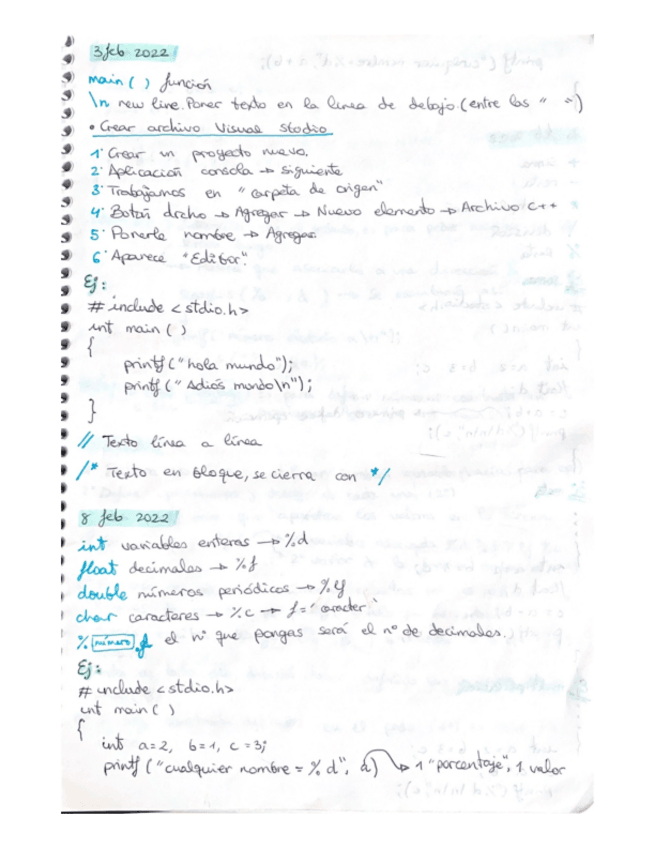 3 feb 2022
main ( ) función
\n new line. Poner texto en la linea de debajo (entre las " ")
• Crear archivo Visual Stodio
1· Crear un proyecto nuevo.
2· Aplicación consola → siguiente
3· Trabajamos en "carpeta de origen"
4· Botón drcho → Agregar → Nuevo elemento → Archivo C++
5· Ponerle nombre → Agregar
6· Aparece "Editor"
Ej:
# include < stdio.h>
int main ( )
{
printf ("hola mundo");
printf (" Adiós mundo\n");
}
// Texto línea a línea
/* Texto en bloque, se cierra con */
8 feb 2022
int variables enteras → %d
float decimales → %f
double números periódicos → %lf
char caracteres → %c → f = "caracter"
% número f el nº que pongas será el nº de decimales.
Ej:
# include < stdio.h>
int main ( )
{
int a=2, b=1, c=3;
printf ("cualquier nombre = % d", a) → 1 "porcentaje", 1 valor